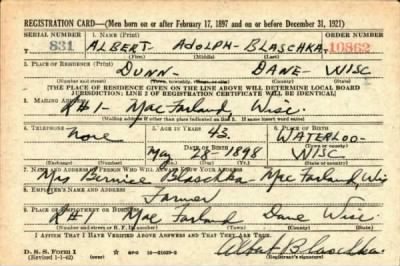 REGISTRATION CARD—(Men born on or after February 17, 1897 and on or before December 31, 1921)
SERIAL NUMBER 1. NAME (Print) ORDER NUMBER
831 ALBERT ADOLPH BLASCHKA 10862
(First) (Middle) (Last)
2. PLACE OF RESIDENCE (Print)
DUNN DANE WISC
(Number and street) (Town, township, village, or city) (County) (State)
[THE PLACE OF RESIDENCE GIVEN ON THE LINE ABOVE WILL DETERMINE LOCAL BOARD
JURISDICTION; LINE 2 OF REGISTRATION CERTIFICATE WILL BE IDENTICAL]
3. MAILING ADDRESS
R#1- Mac Farland Wisc.
[Mailing address if other than place indicated on line 2. If same insert word same]
4. TELEPHONE 5. AGE IN YEARS 6. PLACE OF BIRTH
none 43. WATERLOO-
DATE OF BIRTH (Town or county)
May 28- 1898 WISC
(Exchange) (Number) (Mo.) (Day) (Yr.) (State or country)
7. NAME AND ADDRESS OF PERSON WHO WILL ALWAYS KNOW YOUR ADDRESS
Mrs Bernice Blaschka- Mac Farland, Wis
8. EMPLOYER'S NAME AND ADDRESS
Farmer
9. PLACE OF EMPLOYMENT OR BUSINESS
R#1 Mac Farland Dane Wisc.
(Number and street or R. F. D. number) (Town) (County) (State)
I AFFIRM THAT I HAVE VERIFIED ABOVE ANSWERS AND THAT THEY ARE TRUE.
D. S. S. Form 1
(Revised 1-1-42) (over) Albert Blaschka.
(Registrant's signature)